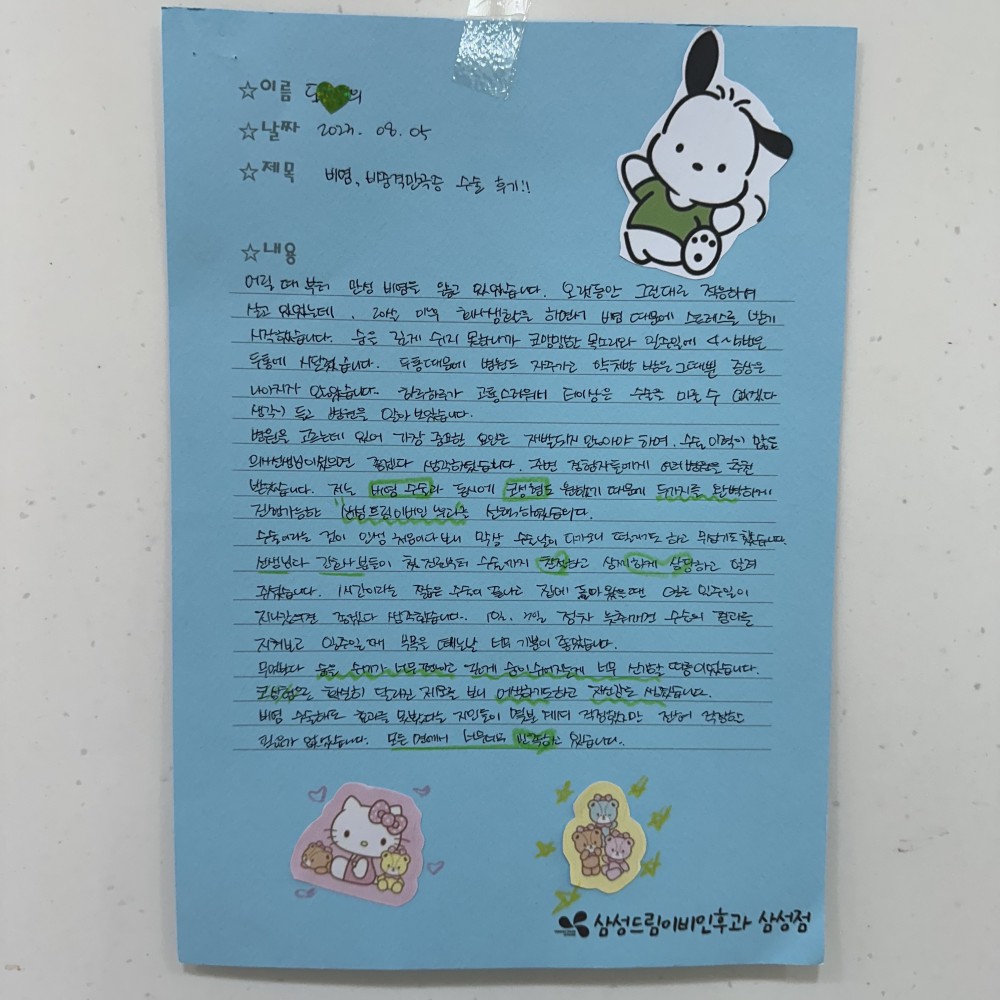 ☆이름 도💚의
☆날짜 2023. 08. 05
☆제목 비염, 비중격만곡증 수술 후기!!
☆내용
어릴 때 부터 만성 비염을 앓고 있었습니다. 오랫동안 그런대로 적응하며
살고 있었는데, 20살 이후 회사생활을 하면서 비염 때문에 스트레스를 받기
시작했습니다. 숨은 깊게 쉬지 못하니까 코맹맹한 목소리와 일주일에 4~5번은
두통에 시달렸습니다. 두통때문에 병원도 자주가고 약처방 받은 그때뿐 증상은
나아지지 않았습니다. 하루하루가 고통스러워서 더이상은 수술을 미룰 수 없겠다
생각이 들고 병원을 알아 보았습니다.
병원을 고르는데 있어 가장 중요한 요인은 재발되지 않아야 하며, 수술 이력이 많은
의사선생님이셨으면 좋겠다 생각하였습니다. 주변 경험자들에게 여러병원을 추천
받았습니다. 저는 비염 수술과 동시에 코성형도 원했기 때문에 두가지를 완벽하게
진행가능한 "삼성드림이비인후과"를 선택하였습니다.
수술이라는 것이 인생 처음이다보니 막상 수술날이 다가오니 떨리기도 하고 무섭기도 했습니다.
선생님과 간호사분들이 첫 진료부터 수술까지 친절하고 상세하게 상담하고 알려
주셨습니다. 1시간이라는 짧은 수술이 끝나고 집에 돌아 왔을땐 얼른 일주일이
지나갔으면 좋겠다 생각했습니다. 1일, 2일 점차 늦춰가면 수술의 결과를
지켜보고 일주일 째 부목을 떼는날 너무 기쁨이 좋았습니다.
무엇보다 숨을 쉬기가 너무 편하고 깊게 숨이 쉬어지는게 너무 신기할 따름이었습니다.
코성형으로 확실히 달라진 저모습 보니 어색하기도하고 자신감도 생겼습니다.
비염 수술해도 효과를 못봤다는 지인들이 몇분 계셔 걱정했지만 전혀 걱정할
필요가 없었습니다. 모든 면에서 너무너무 만족하고 있습니다.
삼성드림이비인후과 삼성점